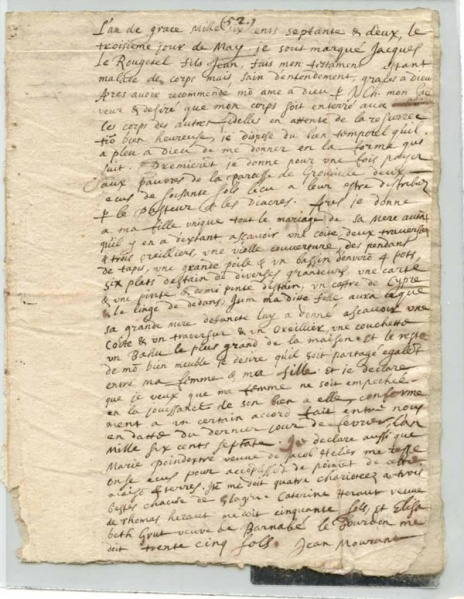 (52.)
L'an de grace Mille six cents septante & deux, le
troisiesme jour de May, je sous marqué Jacques
Le Rougetel fils Jean, fais mon testament estant
malade de corps mais sain d'entendement, graces a dieu
Apres avoir recommendé mō ame a dieu & N.Ch. mon
veur & desiré que mon corps soit enterré aux
les corps des autres fidelles en attente de la resurrec
tiō bien heureuse, je dispose du bien temporel qu'il
a pleu a dieu de me donner en la forme qui
suit. Premieremt je donne pour une fois payer
aux pauvres de la paroesse de Grouville deux
ecus de soixante sols l'ecu a leur estre distribuez
p le Pasteur & les Diacres. je donne
a ma fille unique tout le mariage de sa mere
qu'il y en a d'extant ascavoir une coite, deux traversiers
& trois oreilliers, une vielle couverture, des pendans
de tapis, une grande pelle & un bassin d'envirō 4 pots,
six plats d'estain de diverses grandeurs, une carte
& une pinte & demi pinte d'estain, un coffre de Cypre
& le linge de dedans. Item ma dite fille aura ce que
sa grand mere defuncte luy a donné ascavoir une
Coite & un traversier & un oreillier, une couchette
un Bahu le plus grand de la maison & le reste
de mō bien meuble je desire qu'il soit partagé egalemt
entre ma femme & ma fille et je declare
que je veux que ma femme ne soit empechée
en la jouissance de son bien a elle, conforme
ment a un certain accord fait entre nous
en datte du dernier jour de fevrier l'an
Mille six cents septante. Je declare aussi que
Marie poindextre veuve de Jacob Helier me reste
onse ecus pour
& terres. Ite me doit quatre a trois
bestes Caterine Heraut veuve
de Thomas heraut me doit cinquante sols, et Elisa
beth Grut veuve de Barnabé le Bourdon me
doit trente cinq sols. Jean Mourant